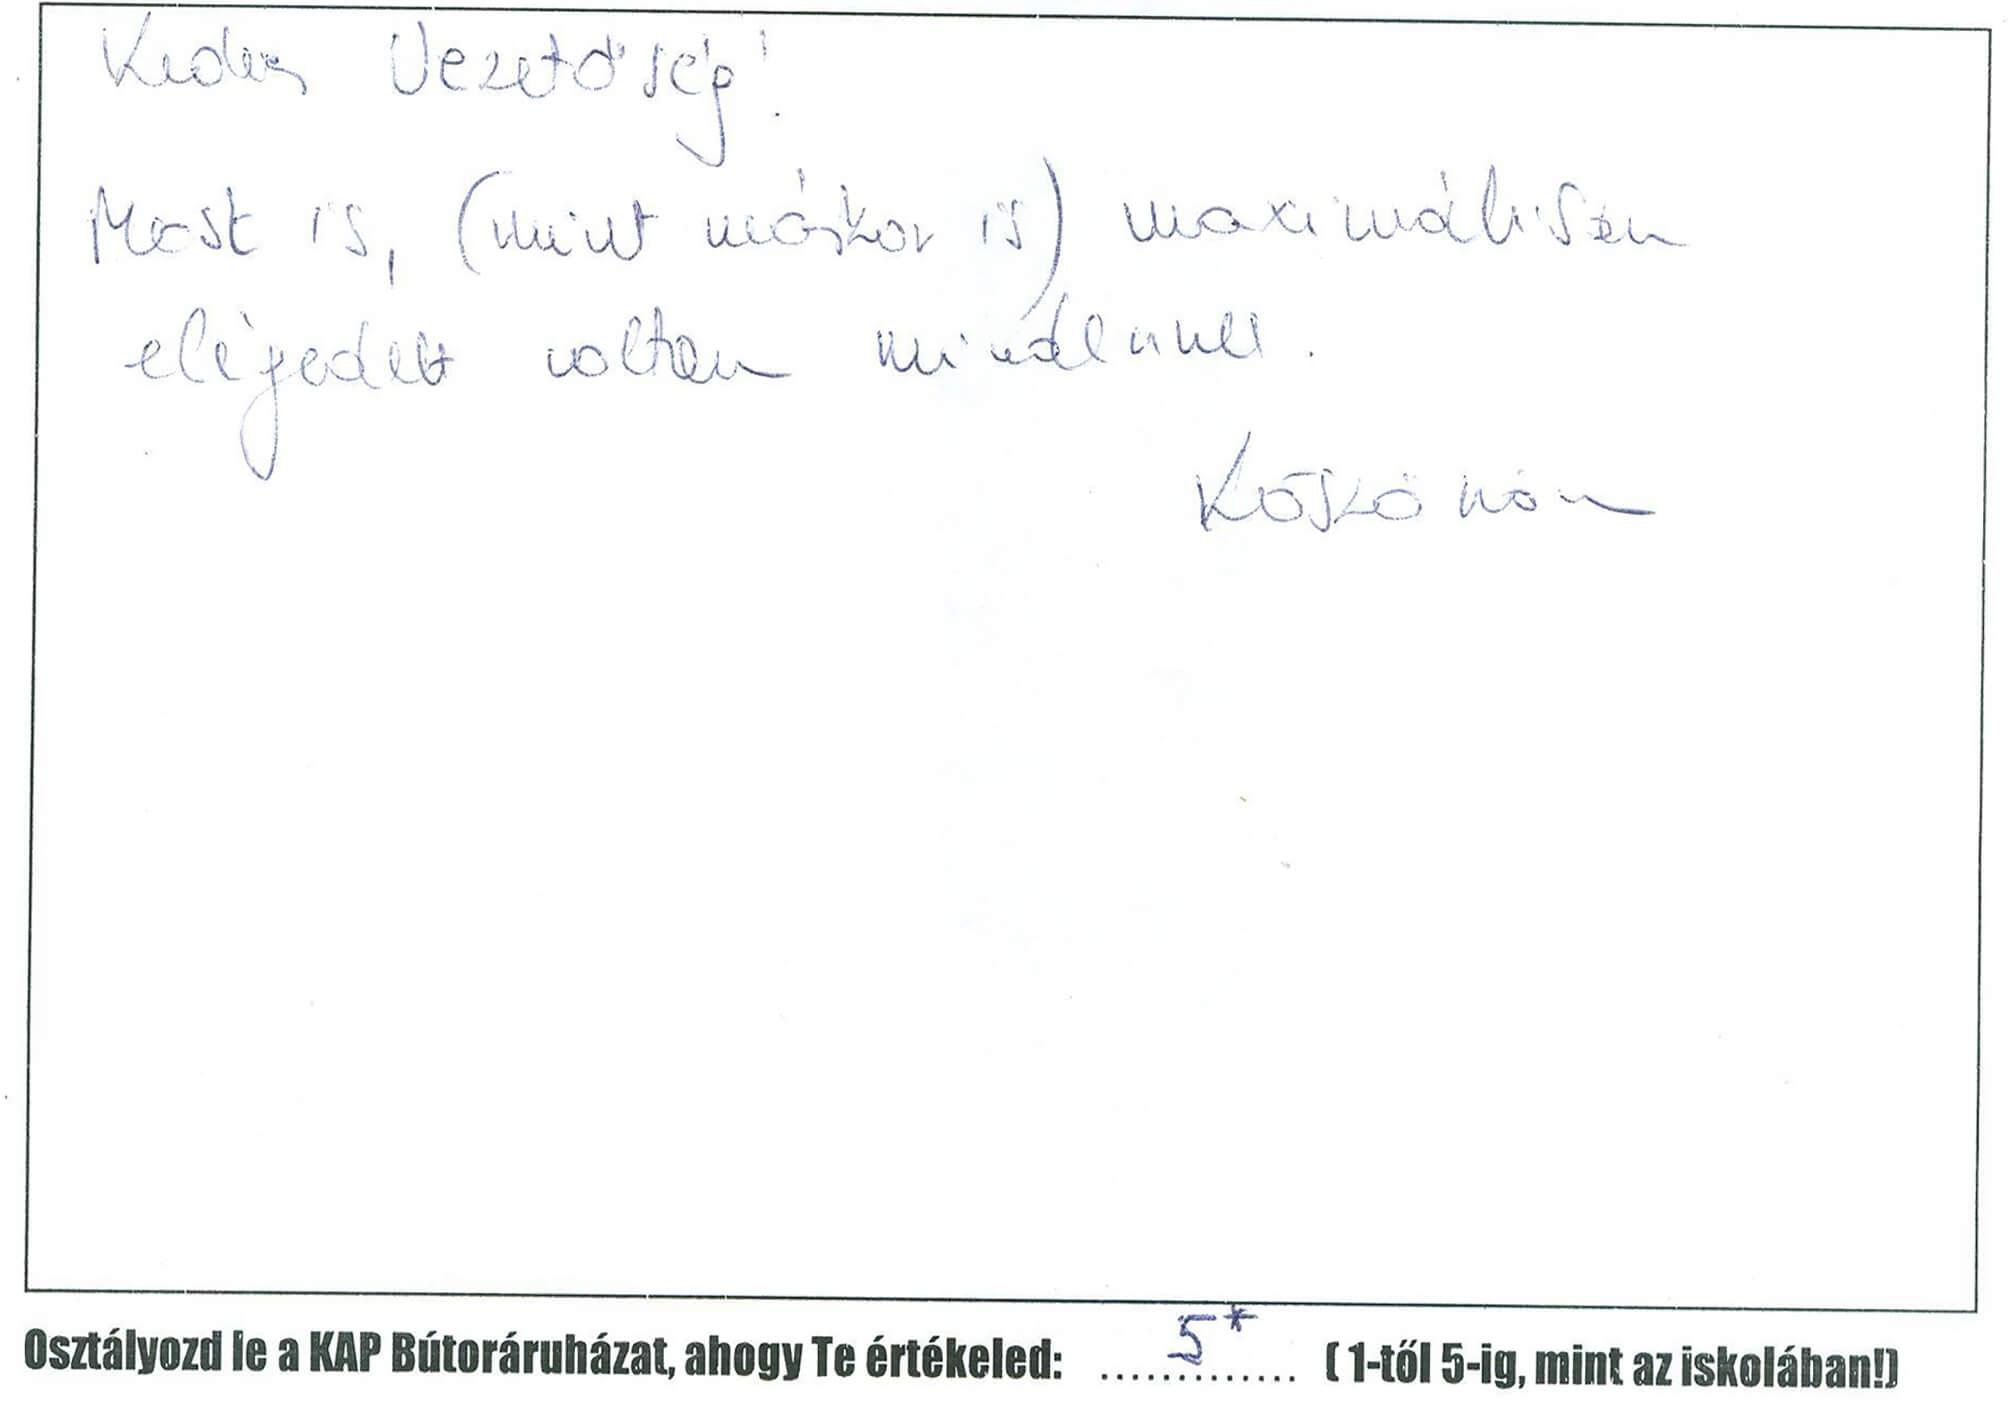 Kedves Vezetőség!
Most is, (mint máskor is) maximálisan
elégedett voltam mindennel.
Köszönöm
Osztályozd le a KAP Bútoráruházat, ahogy Te értékeled: ............. 5* ( 1-től 5-ig, mint az iskolában!)